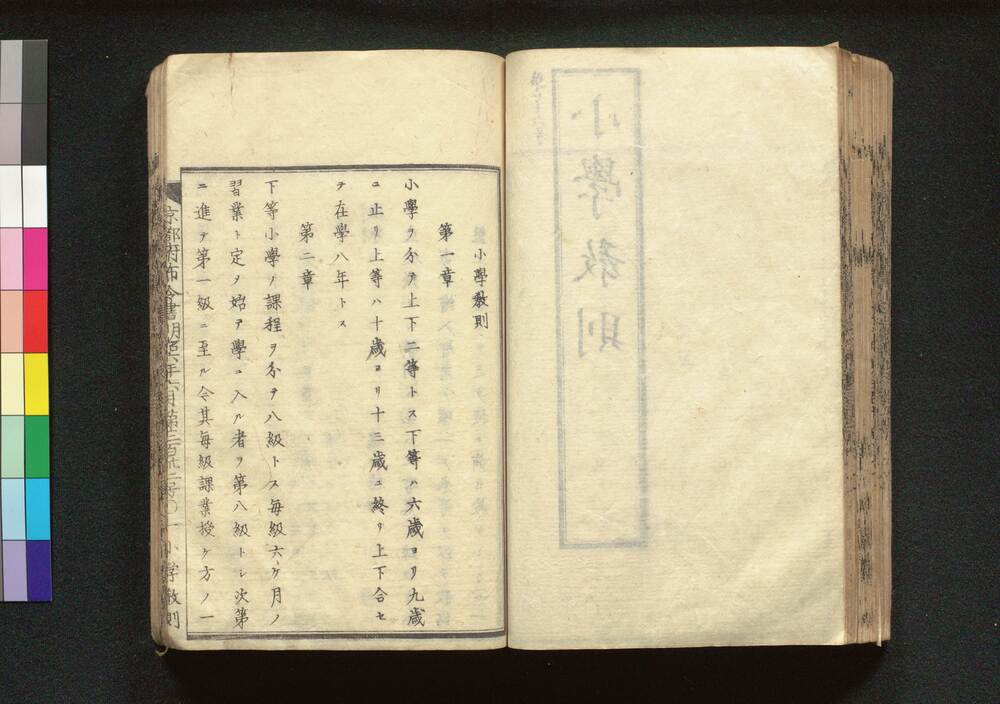 小學教則
小學教則
第一章
小學ヲ分テ上下二等トス下等ハ六歳ヨリ九歳
ニ止リ上等ハ十歳ヨリ十三歳ニ終リ上下合セ
テ在學八年トス
第二章
下等小學ノ課程ヲ分テ八級トス毎級六ヶ月ノ
習業ト定メ始テ學ニ入ル者ヲ第八級トシ次第
ニ進テ第一級ニ至ル今其毎級課業授ケ方ノ一
京都府布令書明治六年六月第二百廿二号〇一小学教則